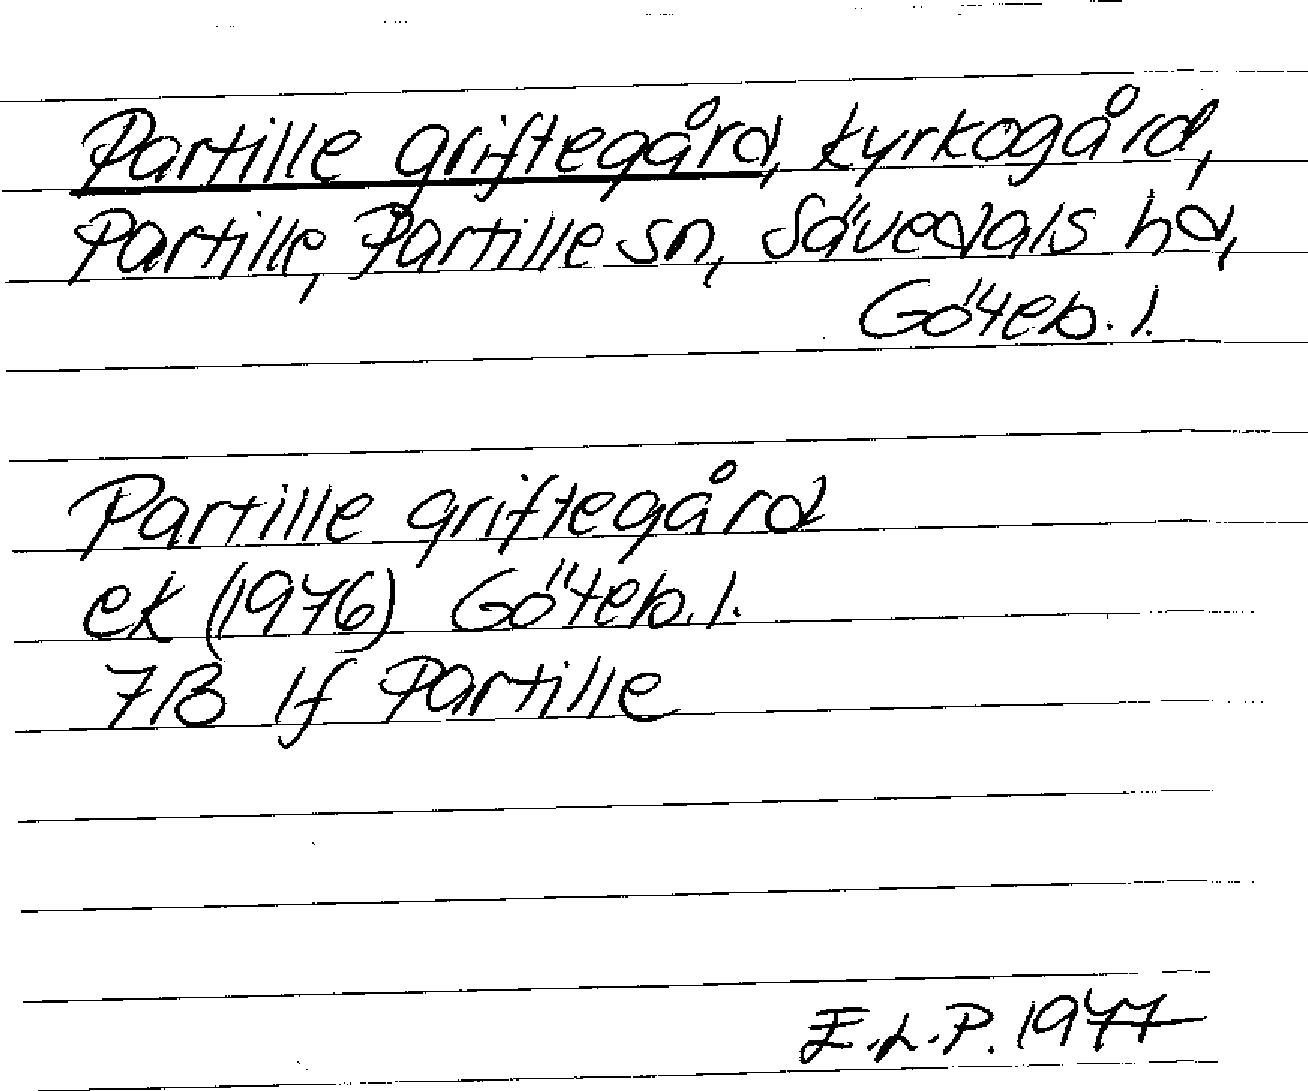 Partille griftegård, kyrkogård,
Partille, Partille sn, Sävedals hd,
Göteb. l.
Partille griftegård
ek (1976) Göteb. l.
7B lf Partille
E.L.P. 1977